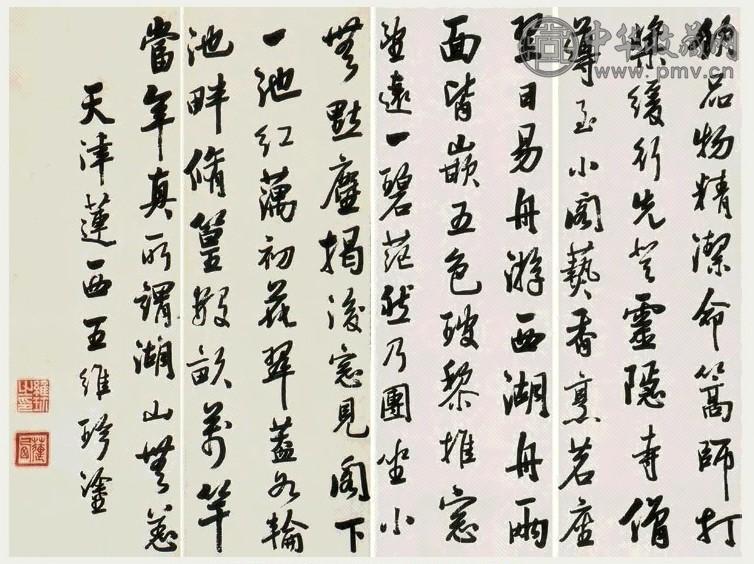 品物精潔命篙師打
槳緩行先登靈隱寺僧
導至小閣藝香烹茗座
翌日易舟游西湖舟兩
面皆嵌五色玻黎推窓
望遠一碧茫然乃團坐小
無點塵揭後窓見閣下
一池紅藕初花翠蓋如輪
池畔脩篁數畝萬竿
當年真所謂湖山無恙
天津蓮西王維珍塗
中华收藏网
www.pmv.cn